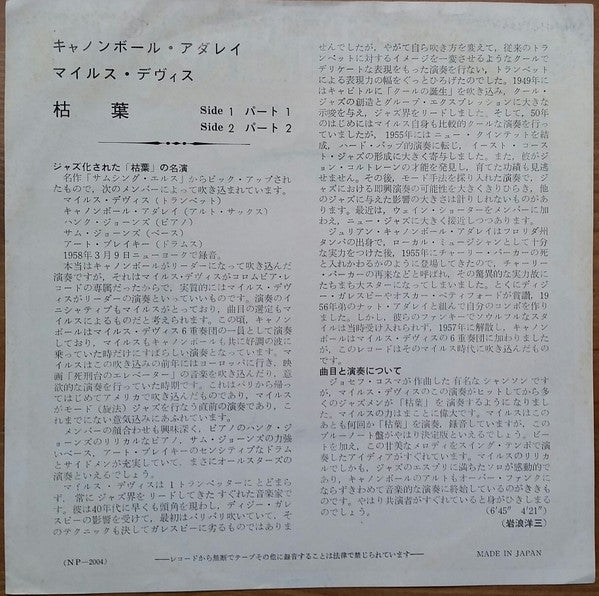 キャノンボール・アダレイ
マイルス・デヴィス
枯葉 Side 1 パート 1
Side 2 パート 2
ジャズ化された「枯葉」の名演
名作「サムシング・エルス」からピック・アップされ
たもので、次のメンバーによって吹き込まれています。
マイルス・デヴィス(トランペット)
キャノンボール・アダレイ(アルト・サックス)
ハンク・ジョーンズ(ピアノ)
サム・ジョーンズ(ベース)
アート・ブレイキー(ドラムス)
1958年3月9日ニューヨークで録音。
本当はキャノンボールがリーダーになって吹き込んだ
演奏ですが、それはマイルス・デヴィスがコロムビア・レ
コードの専属だったからで、実質的にはマイルス・デヴ
ィスがリーダーの演奏といっていいものです。演奏のイ
ニシャティブもマイルスがとっており、曲目の選定もマ
イルスによるものだと考えられます。この頃、キャノン
ボールはマイルス・デヴィス6重奏団の一員として演奏
しており、マイルスもキャノンボールも共に好調の波に
乗っていた時だけにすばらしい演奏となっています。マ
イルスはこの吹き込みの前年にはヨーロッパに行き、映
画「死刑台のエレベーター」の音楽を吹き込んだり、意
欲的な演奏を行っていた時期です。これはパリから帰っ
てはじめてアメリカで吹き込んだものであり、マイルス
がモード(旋法)ジャズを行なう直前の演奏であり、こ
れまでにない意気込みにあふれています。
メンバーの顔合わせも興味深く、ピアノのハンク・ジ
ョーンズのリリカルなピアノ、サム・ジョーンズの力強
いベース、アート・ブレイキーのセンシティブなドラム
とサイドメンが充実していて、まさにオールスターズの
演奏といえるでしょう。
マイルス・デヴィスは1トランペッターにとどまら
ず、常にジャズ界をリードしてきたすぐれた音楽家で
す。彼は40年代に早くも頭角を現わし、ディジー・ガレ
スピーの影響を受けて、最初はバリバリ吹いていて、そ
のテクニックも決してガレスピーに劣るものではありま
せんでしたが、やがて自ら吹き方を変えて、従来のトラ
ンペットに対するイメージを一変させるようなクールで
デリケートな表現をもった演奏を行ない、トランペット
による表現力の幅をぐっとひろげたのでした。1949年に
はキャピトルに「クールの誕生」を吹き込み、クール・
ジャズの創造とグループ・エクスプレッションに大きな
示唆を与え、ジャズ界をリードしました。そして、50年
のはじめにはマイルス自身も比較的クールな演奏を行な
っていましたが、1955年にはニュー・クインテットを結
成、ハード・バップ的演奏に転じ、イースト・コース
ト・ジャズの形成に大きく寄与しました。また、彼がジ
ョン・コルトレーンの才能を発見し、育てた功績も見逃
せません。その後、モード手法を採り入れた演奏で、ジ
ャズにおける即興演奏の可能性を大きくきりひらき、他
のジャズに与えた影響の大きさは計りしれないものがあ
ります。最近は、ウェイン・ショーターをメンバーに加
わえ、ニュー・ジャズに大きく接近しつつあります。
ジュリアン・キャノンボール・アダレイはフロリダ州
タンパの出身で、ローカル・ミュージシャンとして十分
な実力をつけた後、1955年にチャーリー・パーカーの死
と入れかわるかのように登場してきたもので、チャーリ
ー・パーカーの再来などと呼ばれ、その驚異的な実力故に
たちまち大スターになってしまいました。とくにディジ
ー・ガレスピーやオスカー・ペティフォードが賞讃、1
956年弟のナット・アダレイと組んで自分のコンボを作り
ました。しかし、彼らのファンキーでソウルフルなスタ
イルは当時受け入れられず、1957年に解散し、キャノン
ボールはマイルス・デヴィスの6重奏団に加わりました
が、このレコードはそのマイルス時代に吹き込んだもの
です。
曲目と演奏について
ジョセフ・コスマが作曲した有名なシャンソンです
が、マイルス・デヴィスのこの演奏がヒットしてから多
くのジャズメンが「枯葉」を演奏するようになりまし
た。マイルスの力はまことに偉大です。マイルスはこの
あとも何回か「枯葉」を演奏、録音していますが、この
ブルーノート盤がやはり決定版といえるでしょう。ビー
トを加え、この甘美なメロディをスイング・テンポで演
奏したアイディアがすぐれています。マイルスのリリカ
ルでしかも、ジャズのエスプリに満ちたソロが感動的で
あり、キャノンボールのアルトもオーバー・ファンクに
ならずきわめて音楽的な演奏に終始しているのがききも
のです。やはり共演者がすぐれていると身がひきしまる
のでしょう。 (6'45" 4'21")
(岩浪洋三)
(NP-2004)
―レコードから無断でテープその他に録音することは法律で禁じられています―
MADE IN JAPAN